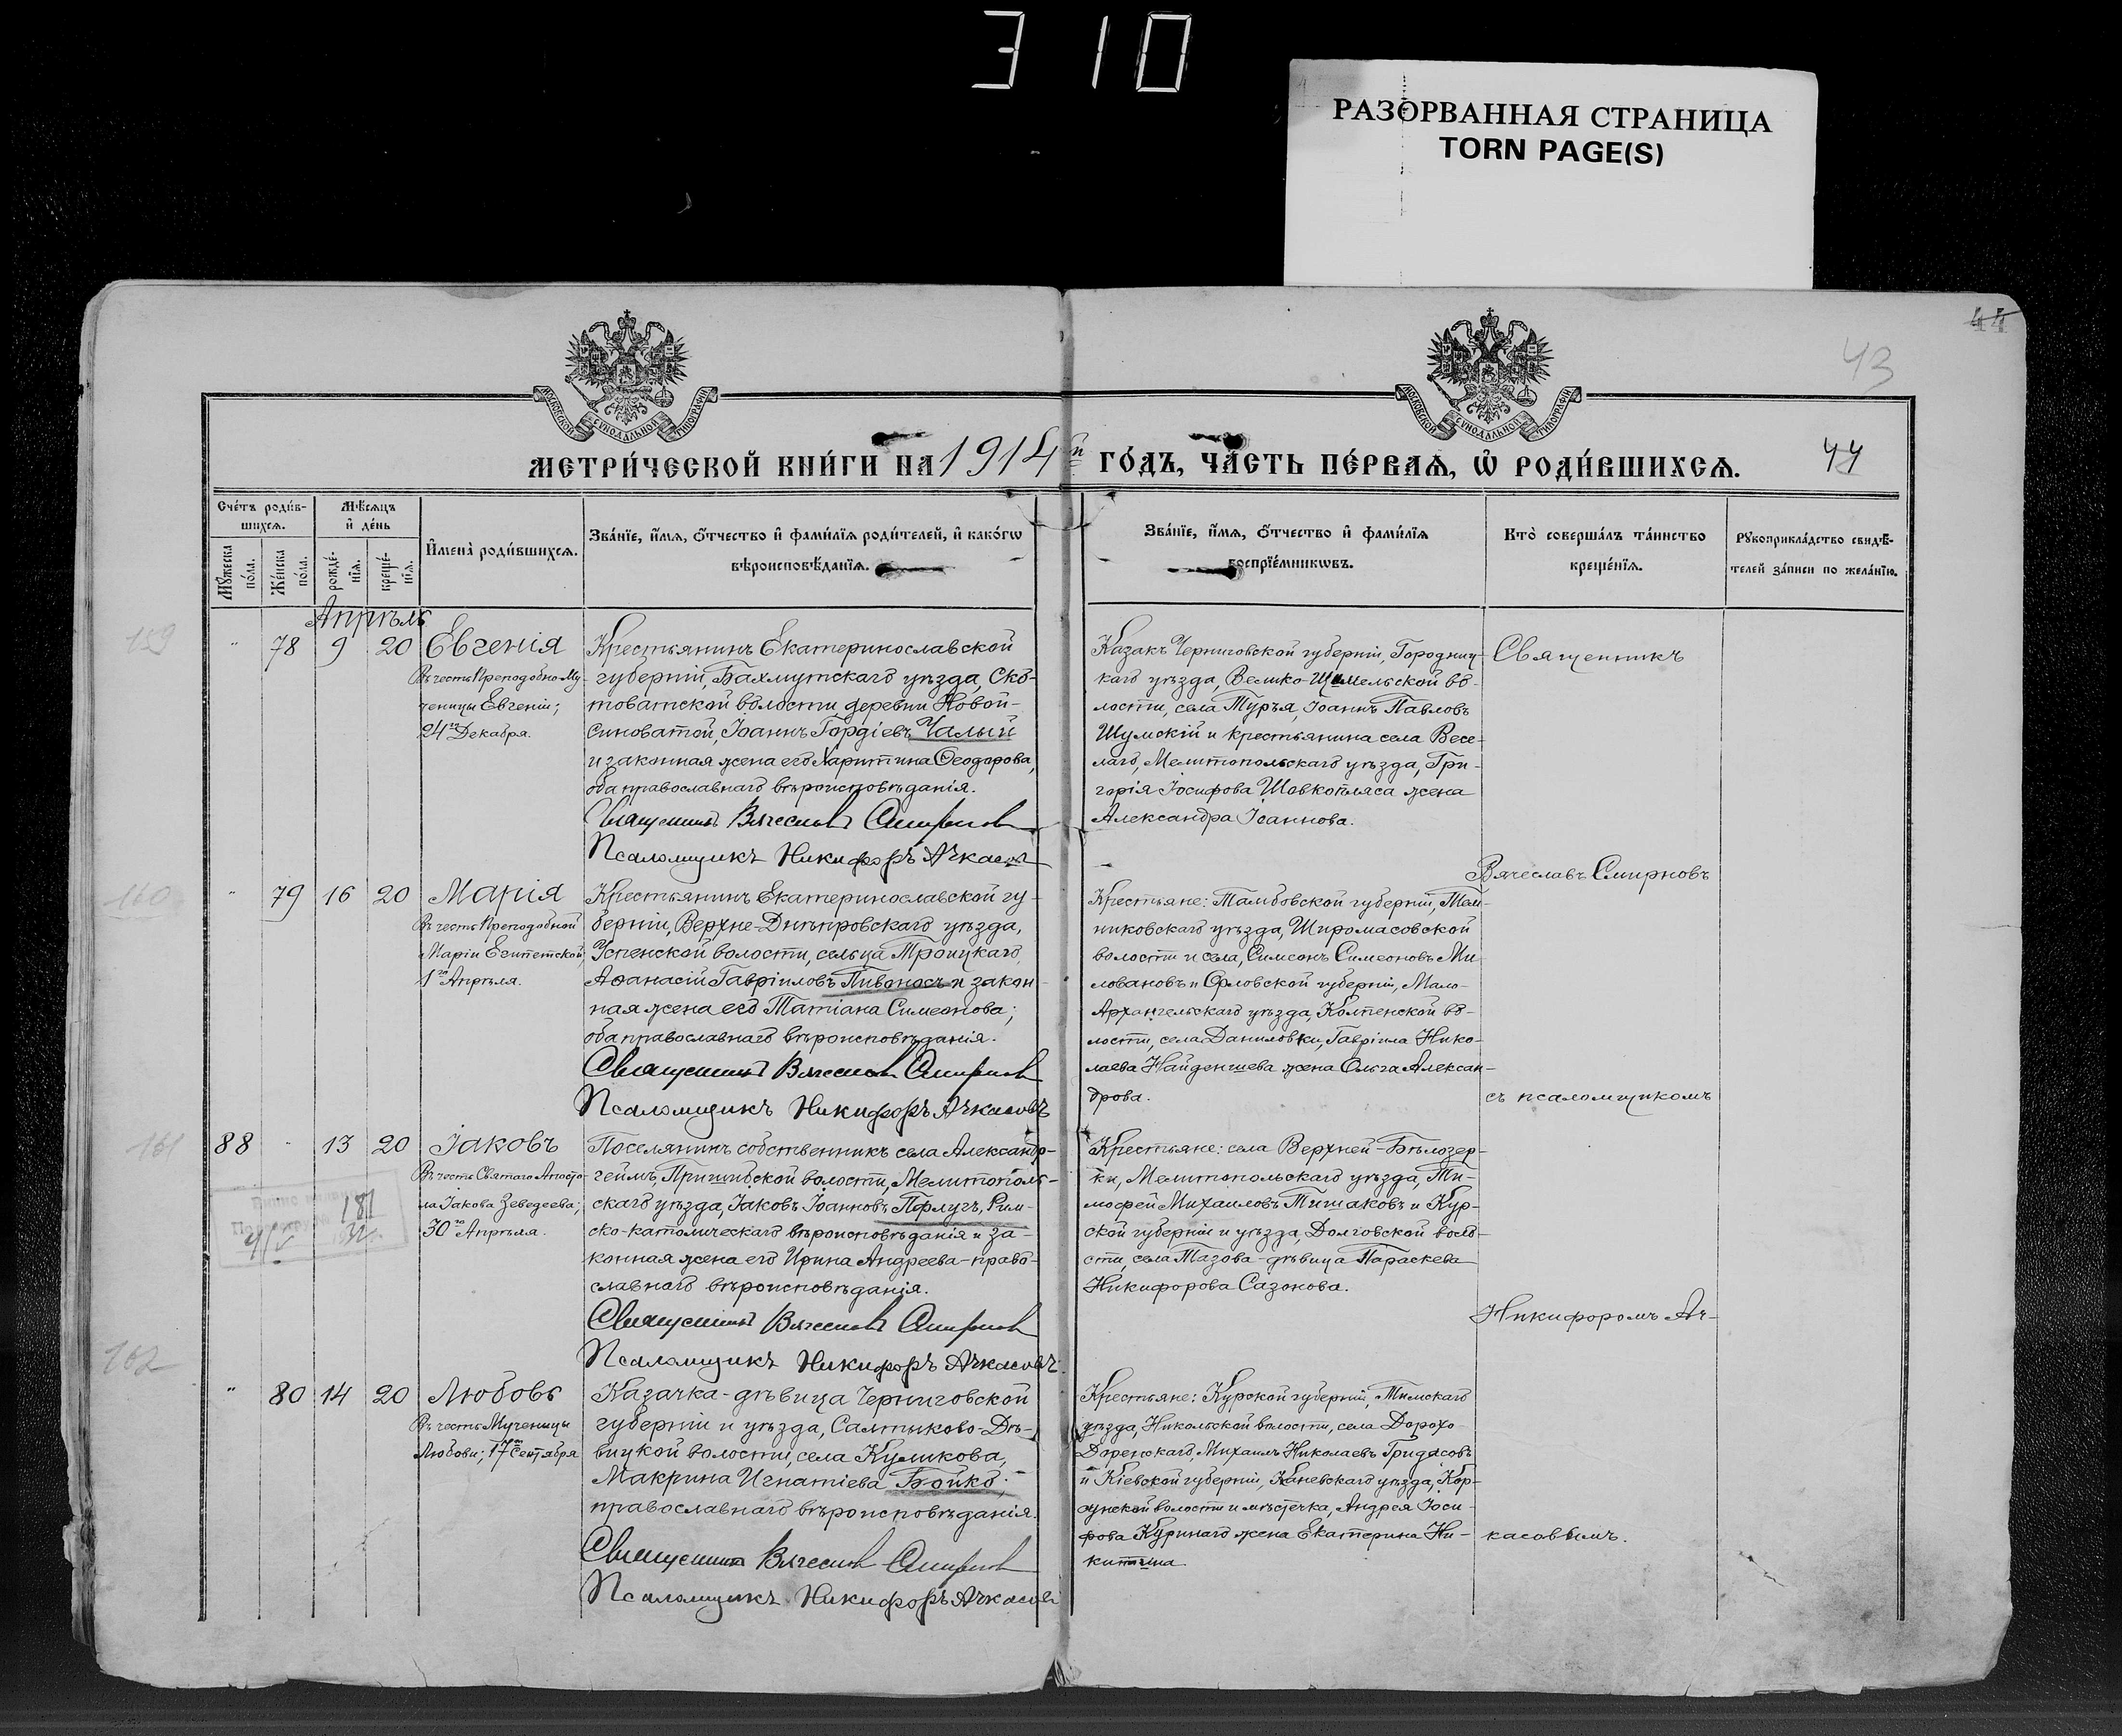 310
РАЗОРВАННАЯ СТРАНИЦА
TORN PAGE(S)
44
43
МОСКОВСКОЙ СѴНОДАЛЬНОЙ ТИПОГРАФІИ
МОСКОВСКОЙ СѴНОДАЛЬНОЙ ТИПОГРАФІИ
МЕТРИ́ЧЕСКОЙ КНИ́ГИ НА 1914й ГО́ДЪ, ЧА́СТЬ ПЕ́РВАѦ, Ѡ҆ РОДИ́ВШИХСѦ.
44
Сче́тъ роди́в-
шихсѧ.
Мꙋ́жеска
по́ла.
Же́нска
по́ла.
Мѣ́сѧцъ
и҆ де́нь
рожде́-
нїѧ.
креще́-
нїѧ.
И҆мена̀ роди́вшихсѧ.
Зва́нїе, и҆́мѧ, ѻ҆́тчество и҆ фами́лїѧ роди́телей, и҆ како́гѡ
вѣроисповѣ́данїѧ.
Зва́нїе, и҆́мѧ, ѻ҆́тчество и҆ фами́лїѧ
воспрїе́мникѡвъ.
Кто̀ соверша́лъ та́инство
креще́нїѧ.
Рꙋкоприкла́дство свидѣ́-
телей за́писи по жела́нїю.
Апрѣль
159
" 78 9 20 Евгенія
Въ честь Преподобно-Му-
ченицы Евгеніи;
24го Декабря.
Крестьянинъ Екатеринославской
губерніи, Бахмутскаго уѣзда, Ско-
товатской волости деревни Новой-
Синоватой, Іоаннъ Гордіевъ Чалый
и законная жена его Харитина Ѳеодорова,
оба православнаго вѣроисповѣданія.
Священникъ Вячеславъ Смирновъ
Псаломщикъ Никифоръ Ачкасовъ
Казакъ Черниговской губерніи, Городниц-
каго уѣзда, Велико-Щимельской во-
лости, села Турья, Іоаннъ Павловъ
Шумскій и крестьянина села Весе-
лаго, Мелитопольскаго уѣзда, Гри-
горія Іосифова Шовкопляса жена
Александра Іоаннова.
Священникъ
Вячеславъ Смирновъ
160
" 79 16 20 Марія
Въ честь Преподобной
Маріи Египетской,
1го Апрѣля.
Крестьянинъ Екатеринославской гу-
берніи, Верхне-Днѣпровскаго уѣзда,
Успенской волости, сельца Троицкаго,
Аѳанасій Гавріиловъ Пивоносъ и закон-
ная жена его Татіана Симеонова;
оба православнаго вѣроисповѣданія.
Священникъ Вячеславъ Смирновъ
Псаломщикъ Никифоръ Ачкасовъ
Крестьяне: Тамбовской губерніи, Тем-
никовскаго уѣзда, Широмасовской
волости и села, Симеонъ Симеоновъ Ми-
ловановъ и Орловской губерніи, Мало-
Архангельскаго уѣзда, Колпенской во-
лости, села Даниловки, Гавріила Нико-
лаева Найденшева жена Ольга Алексан-
дрова.
съ псаломщикомъ
161
88 " 13 20 Іаковъ
Въ честь Святаго Апосто-
ла Іакова Зеведеева;
30го Апрѣля.
181
Поселянинъ собственникъ села Александр-
геймъ, Пришибской волости, Мелитополь-
скаго уѣзда, Іаковъ Іоанновъ Пфлугъ, Рим-
ско-католическаго вѣроисповѣданія и за-
конная жена его Ирина Андреева-право-
славнаго вѣроисповѣданія.
Священникъ Вячеславъ Смирновъ
Псаломщикъ Никифоръ Ачкасовъ
Крестьяне: села Верхней-Бѣлозер-
ки, Мелитопольскаго уѣзда, Ти-
мофей Михаиловъ Тишаковъ и Кур-
ской губерніи и уѣзда, Долговской воло-
сти, села Тазова-дѣвица Параскева
Никифорова Сазонова.
Никифоромъ Ач-
162
" 80 14 20 Любовь
Въ честь Мученицы
Любови; 17го Сентября
Казачка-дѣвица Черниговской
губерніи и уѣзда, Салтыково-Дѣ-
вицкой волости, села Куликова,
Макрина Игнатіева Бойко;-
православнаго вѣроисповѣданія.
Священникъ Вячеславъ Смирновъ
Псаломщикъ Никифоръ Ачкасовъ
Крестьяне: Курской губерніи, Тимскаго
уѣзда, Никольской волости, села Дорохо-
Доренскаго, Михаилъ Николаевъ Гридасовъ
и Кіевской губерніи, Каневскаго уѣзда, Кор-
сунской волости и мѣстечка, Андрея Іоси-
фова Куринаго жена Екатерина Ни-
китина
касовымъ.